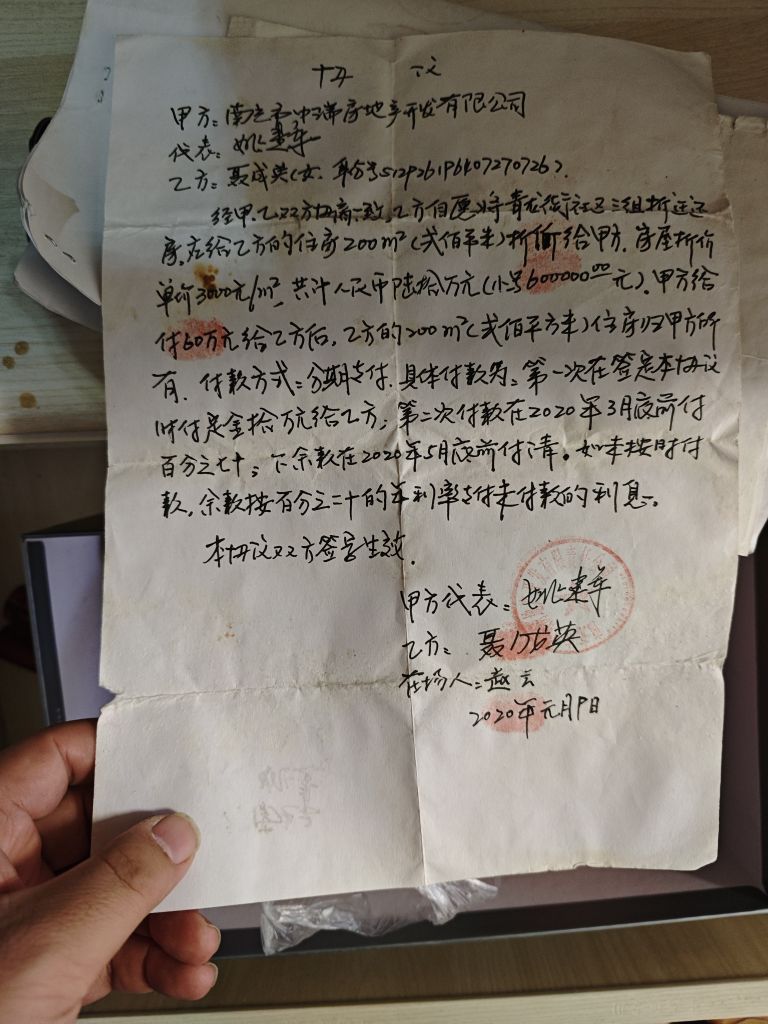 协 议
甲方：南充市中瑞房地产开发有限公司
代表：姚建军
乙方：聂成英(女、身份号512926196407270726)、
经甲、乙双方协商一致,乙方自愿将青龙街社区三组拆迁还
房,应给乙方的住房200m²(贰佰平米)折价给甲方.房屋折价
单价3000元/m²、共计人民币陆拾万元(小号600000.00元)、甲方给
付60万元给乙方后,乙方的200m²(贰佰平方米)住房归甲方所
有.付款方式：分期支付.具体付款为：第一次在签定本协议
时付定金拾万元给乙方；第二次付款在2020年3月底前付
百分之七十；下余款在2020年5月底前付清。如未按时付
款,余款按百分之二十的年利率支付未付款的利息。
本协议双方签字生效.
甲方代表：姚建军
乙方：聂成英
在场人：赵云
2020年元月9日